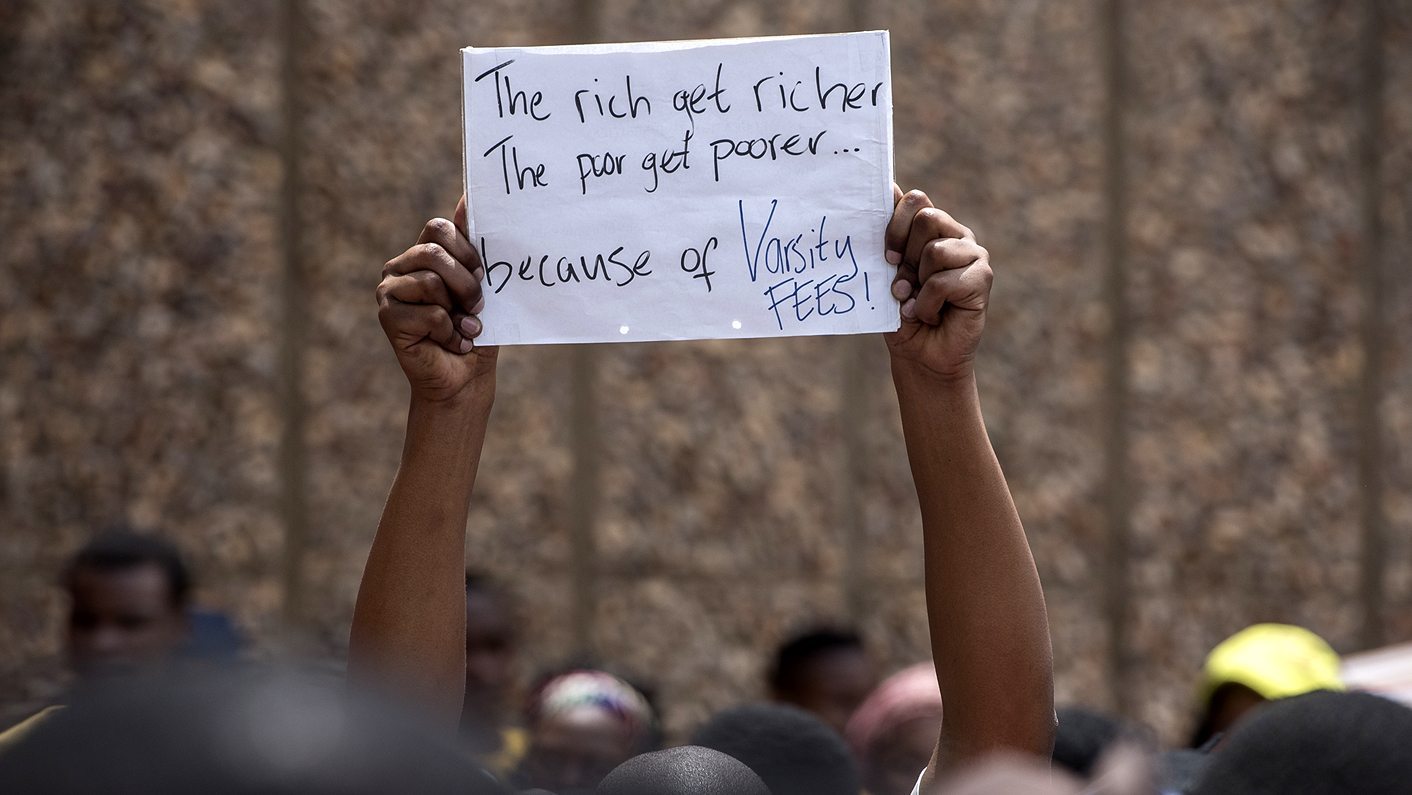 The rich get richer
The poor get poorer...
because of Varsity
FEES!